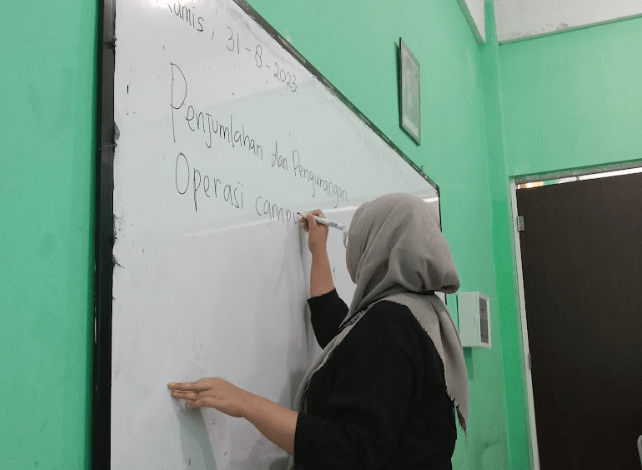 Kamis, 31-8-2023
Penjumlahan dan Pengurangan
Operasi camp